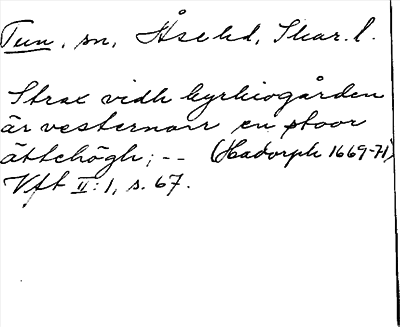 Tun, sn, Åse hd, Skar. l.
Strax vidh kyrkiogården
är vesternarr en stoor
ättehögh; -- (Hadorph 1669-71)
Vft II:1, s. 67.